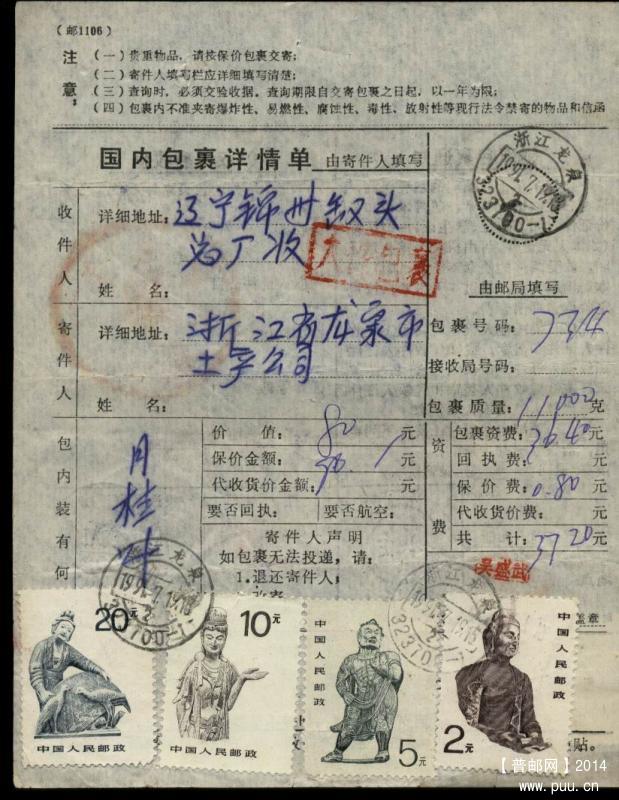 (邮1106)
注意：
(一)贵重物品，请按保价包裹交寄；
(二)寄件人填写栏应详细填写清楚；
(三)查询时，必须交验收据。查询期限自交寄包裹之日起，以一年为限；
(四)包裹内不准夹寄爆炸性、易燃性、腐蚀性、毒性、放射性等现行法令禁寄的物品和信函
国内包裹详情单 由寄件人填写
浙江龙泉
323700
收件人
详细地址：辽宁锦州罐头
厂收
包裹
姓 名：
由邮局填写
寄件人
详细地址：浙江省龙泉市
土产公司
姓 名：
包裹号码：
接收局号码：
包裹质量：11000克
包内装有何
月桂叶
价 值：80元
保价金额：元
代收货价金额：元
要否回执： 要否航空：
资费
包裹资费：36.40元
回执费：元
保价费：0.80元
代收货价费：元
共 计：37.20元
寄件人声明
如包裹无法投递，请：
1.退还寄件人；
吴盛武
盖章
浙江龙泉
323700
20元
中国人民邮政
10元
中国人民邮政
中国人民邮政
5元
中国人民邮政
2元
贴。
【普邮网】2014
www.puu.cn